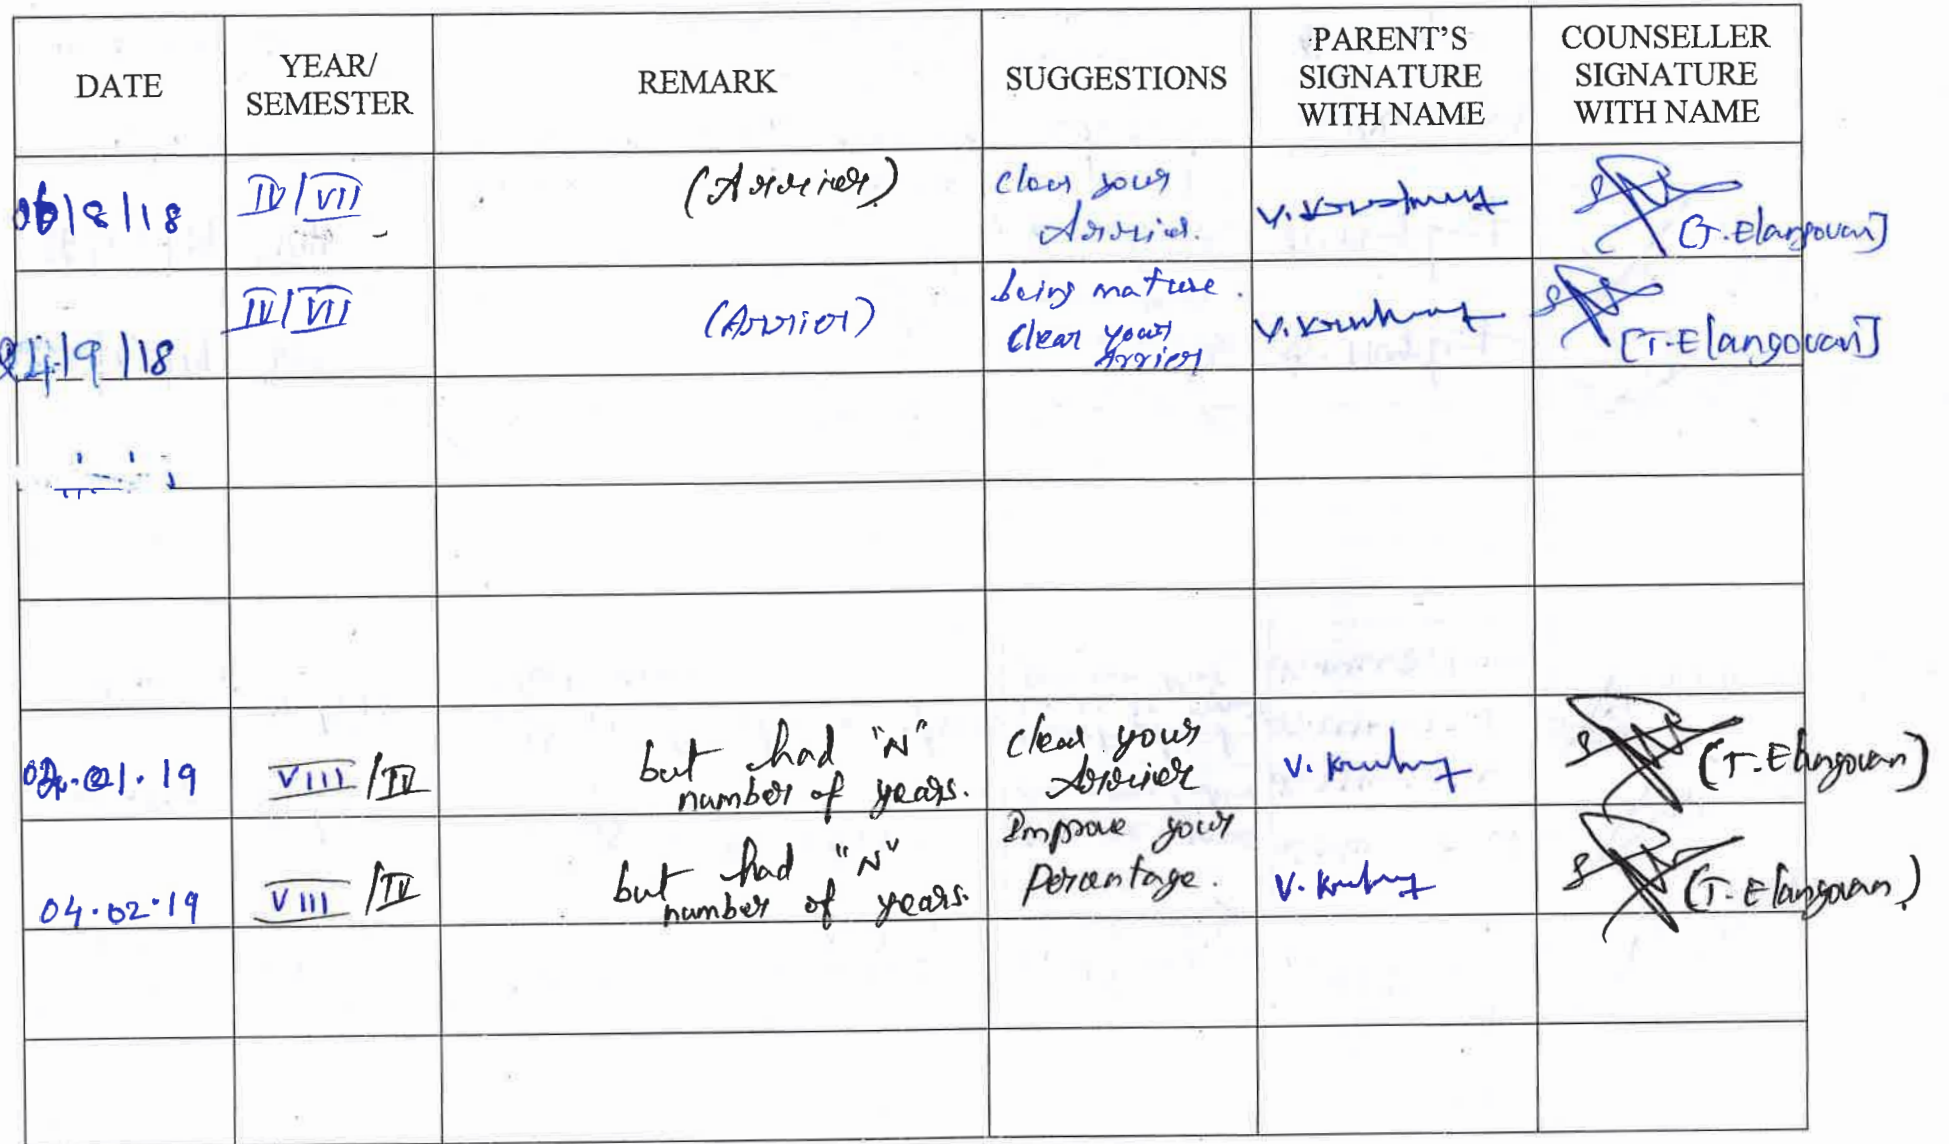 DATE
YEAR/
SEMESTER
REMARK
SUGGESTIONS
PARENT'S
SIGNATURE
WITH NAME
COUNSELLER
SIGNATURE
WITH NAME
/8/18
IV/VII
(Arrier)
Clear your
Arrier.
[T.Elangovan]
24/9/18
IV/VII
(Arrier)
being mature.
Clear your
Arrier
[T.Elangovan]
.01.19
VIII/IV
but had "N"
number of years.
Clear your
Arrier
(T.Elangovan)
04.02.19
VIII/IV
but had "N"
number of years.
Improve your
Percentage.
(T.Elangovan)